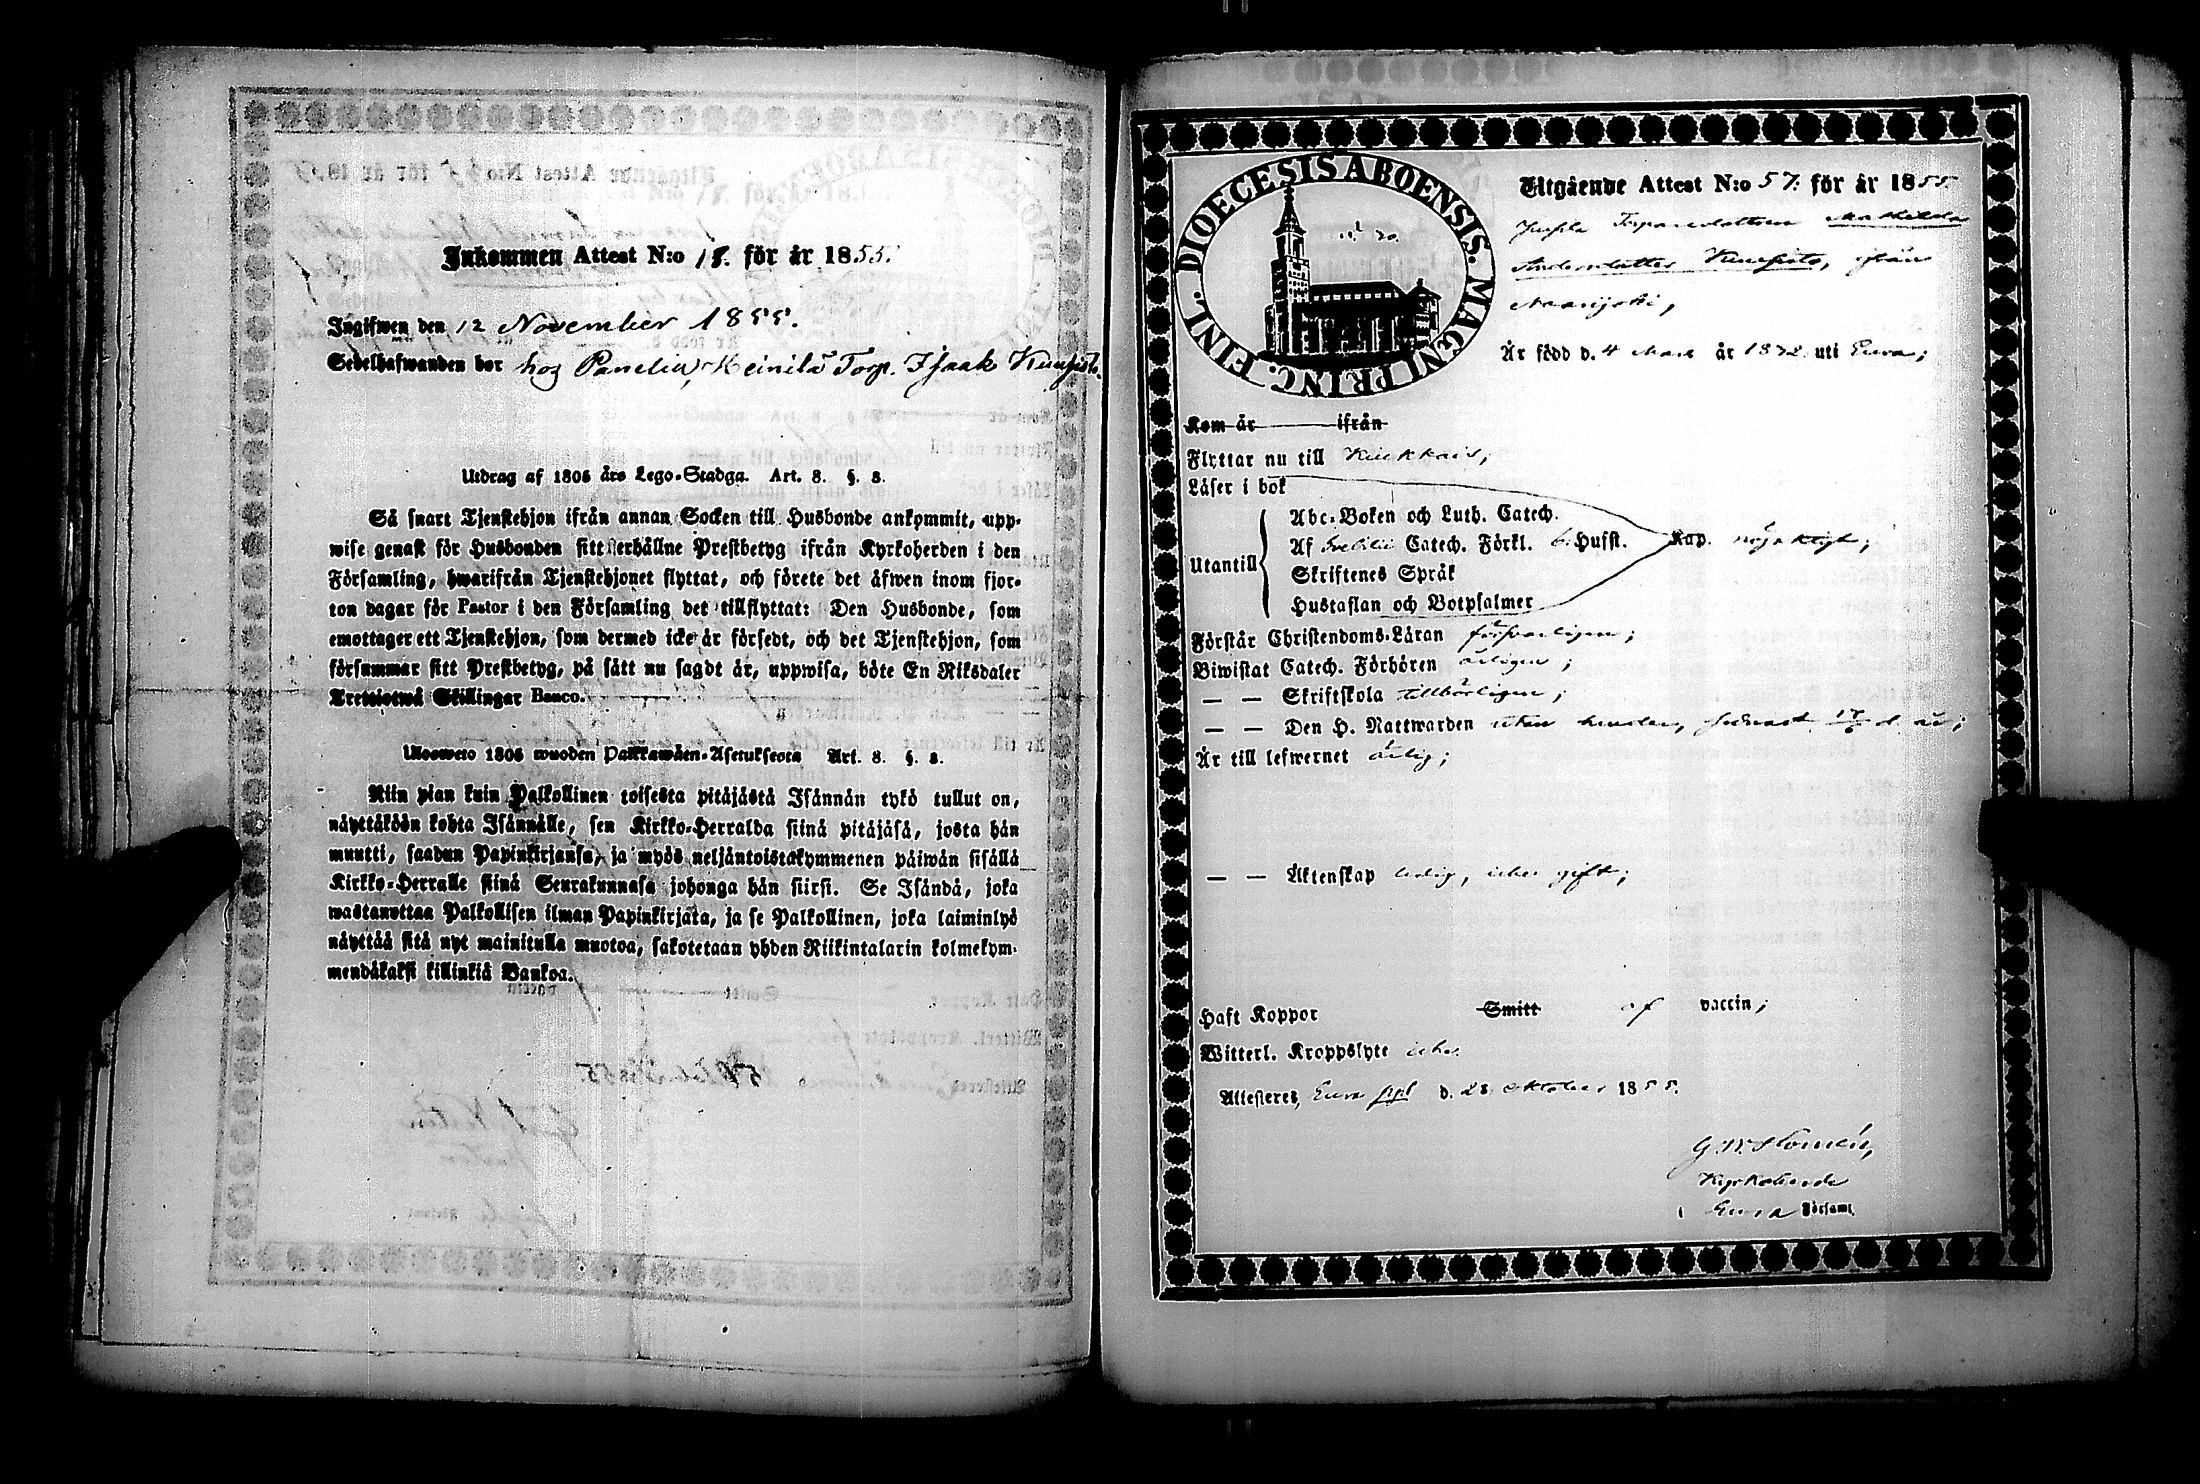 Inkommen Attest N:o 18. för år 1855.
Ingifwen den 12 November 1855.
Sedelhafwanden bor hos Panelia, Heinilä Torp. Isaak
Utdrag af 1805 års Lego-Stadga. Art. 8. §. 8.
Så snart Tjenstehjon ifrån annan Socken till Husbonde ankommit, upp-
wise genast för Husbonden sitt erhållne Prestbetyg ifrån Kyrkoherden i den
Församling, hwarifrån Tjenstehjonet flyttat, och förete det äfwen inom fjor-
ton dagar för Pastor i den Församling det tillflyttat: Den Husbonde, som
emottager ett Tjenstehjon, som dermed icke är försedt, och det Tjenstehjon, som
försummar sitt Prestbetyg, på sätt nu sagdt är, uppwisa, böte En Riksdaler
Trettiotwå Skillingar Banco.
Ulosweto 1805 wuoden Palkkawäen-Asetuksesta Art. 8. §. 8.
Niin pian kuin Palkollinen toisesta pitäjästä Isännän tykö tullut on,
näyttäköön kohta Isännälle, sen Kirkko-Herralda siinä pitäjäsä, josta hän
muutti, saadun Papinkirjansa, ja myös neljäntoistakymmenen päiwän sisällä
Kirkko-Herralle siinä Seurakunnasa johonga hän siirsi. Se Isändä, joka
wastanottaa Palkollisen ilman Papinkirjata, ja se Palkollinen, joka laiminlyö
näyttää sitä nyt mainitulla muotoa, sakotetaan yhden Riikintalarin kolmekym-
mendäkaksi killinkiä Bankoa.
DIOECESIS ABOENSIS. MAGNI PRINC. FINL.
Utgående Attest N:o 57. för år 1855.
Torparedottern Mathilda
Andersdotter, ifrån
Naarijoki,
Är född d. 4 Mars år 1832 uti Eura;
Kom år ifrån
Flyttar nu till Kiukkais;
Läser i bok
Abc-Boken och Luth. Catech.
Af Svebilii Catech. Förkl. Hufst. Kap. nöjaktigt;
Utantill
Skriftenes Språk
Hustaflan och Botpsalmer
Förstår Christendoms-Läran försvarligen;
Biwistat Catech. Förhören årligen;
— — Skriftskola tillbörligen;
— — Den H. Nattwarden utan hinder, sednast d. år;
Är till lefwernet ärlig;
— — Äktenskap ledig, icke gift;
Haft Koppor Smitt af vaccin;
Witterl. Kroppslyte icke.
Attesteres, Eura d. 28 Oktober 1855.
Kyrkoherde
i Eura Församl.